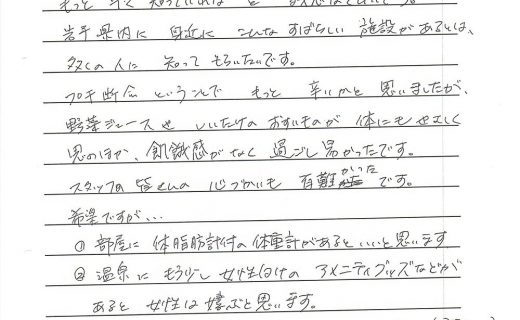 もっと早く知っていれば と
岩手県内に 身近に こんな すばらしい 施設が あるとは、
多くの 人に 知って もらいたいです。
プチ断食 ということで もっと 辛いかと 思いましたが、
野菜ジュースや しいたけの おすいものが 体にも やさしく
思のほか、飢餓感が なく 過ごし易かったです。
スタッフの 皆さんの 心づかいも 有難かった です。
希望ですが…
① 部屋に 体脂肪計付の 体重計が あると いいと 思います
② 温泉に もう少し 女性向けの アメニティグッズなどが
あると 女性は 嬉ぶと 思います。